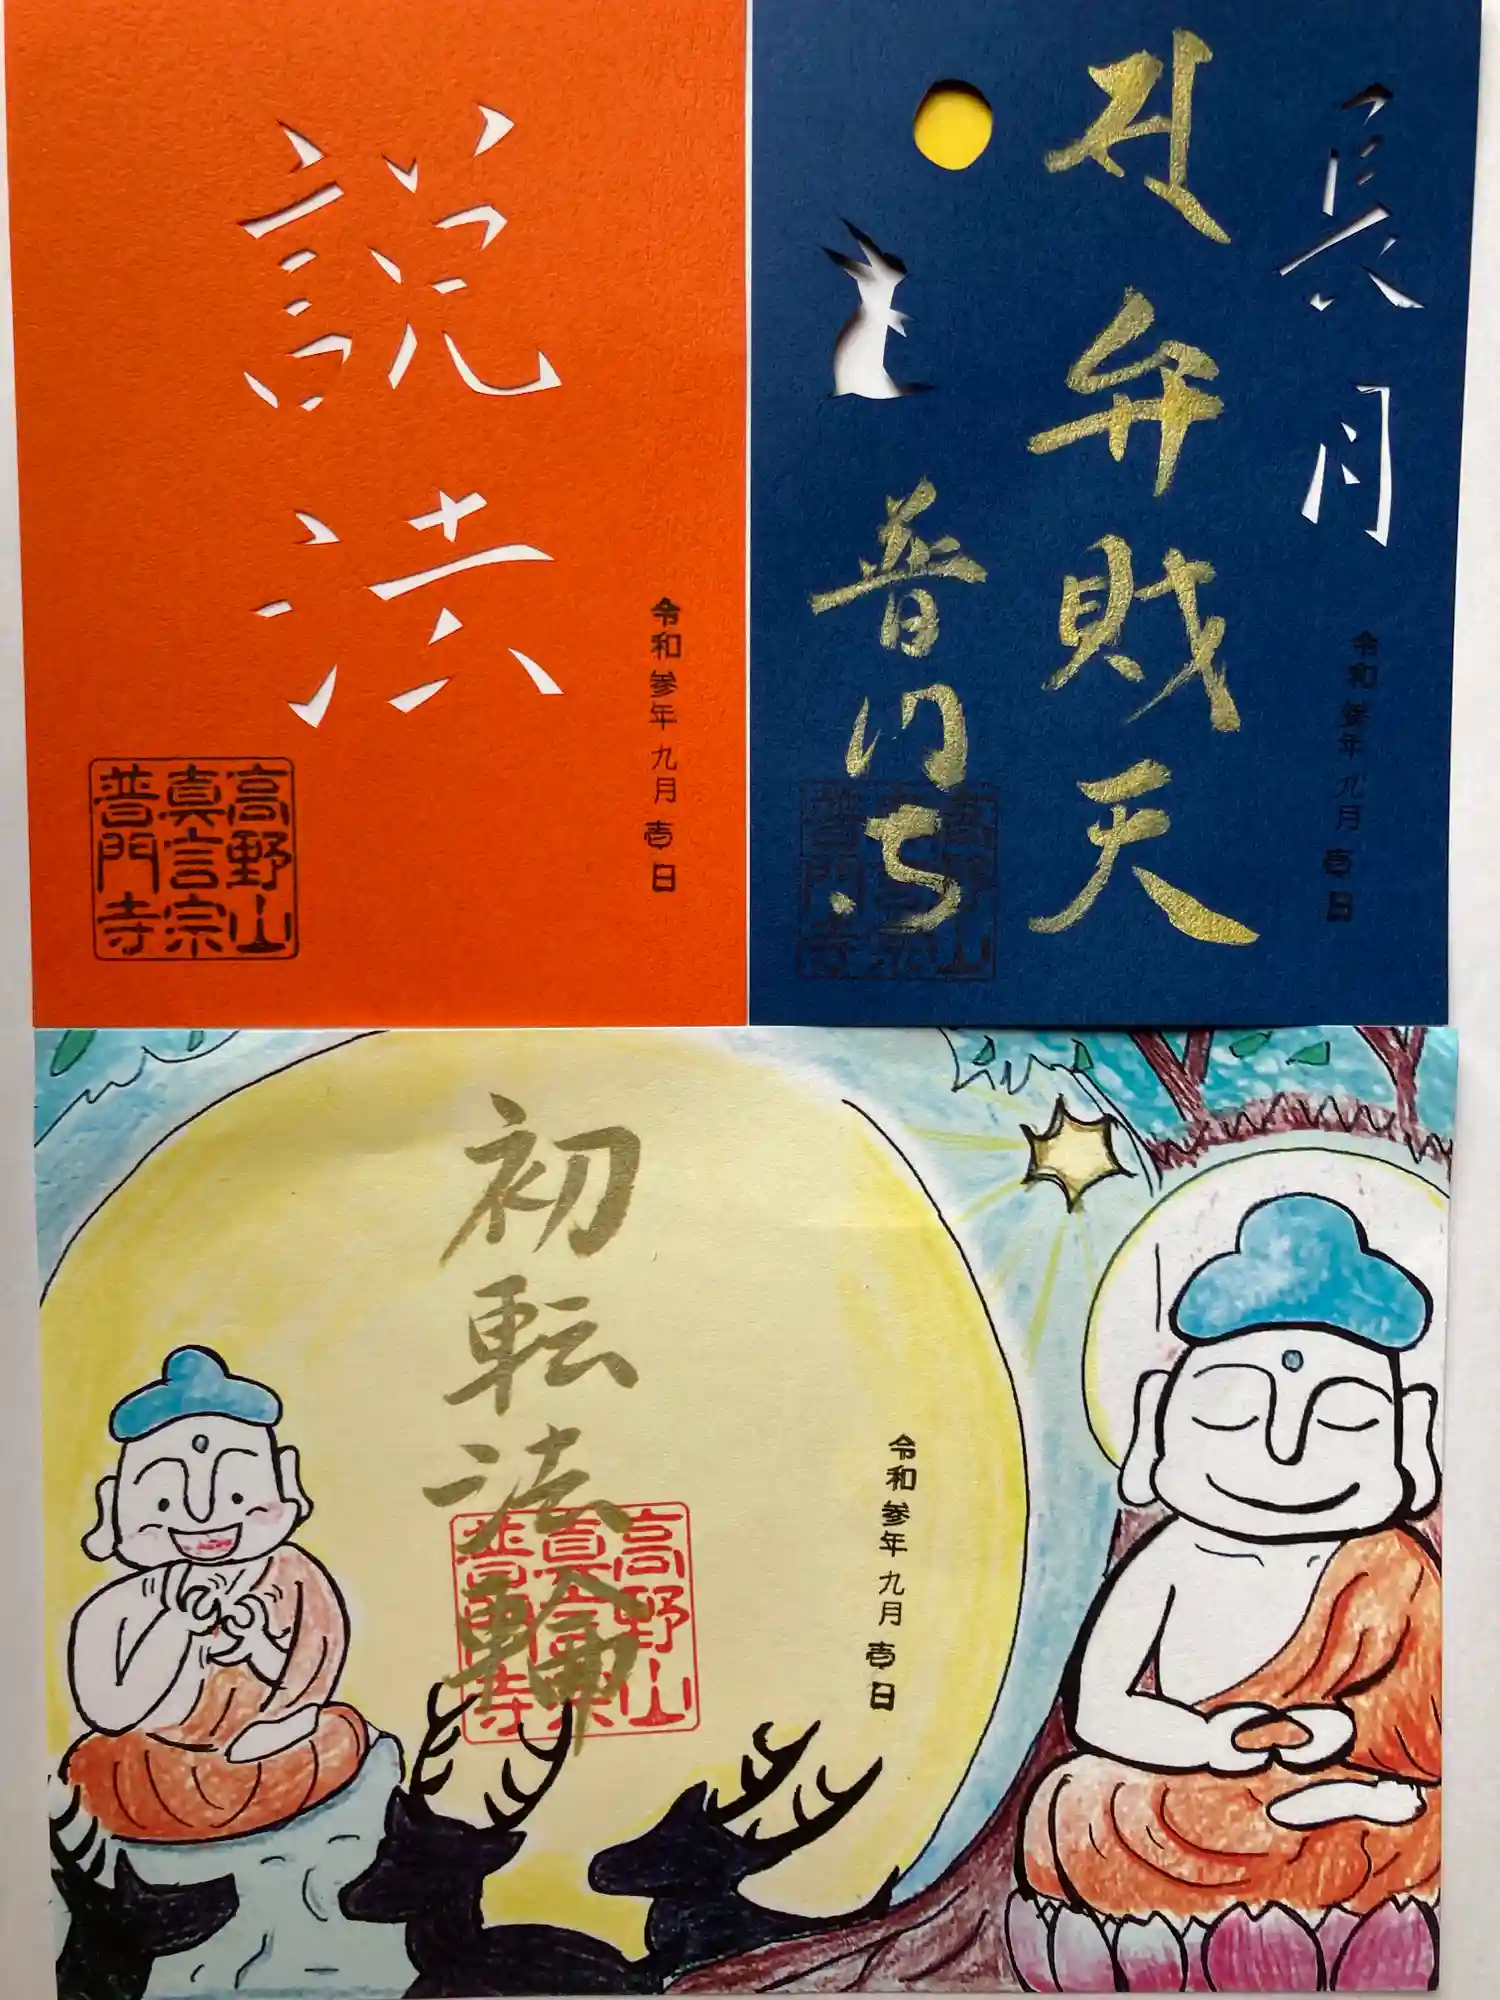 説法
令和参年九月壱日
高野山
真言宗
普門寺
長月
弁財天
普門寺
令和参年九月壱日
高野山
真言宗
普門寺
初転法輪
令和参年九月壱日
高野山
真言宗
普門寺